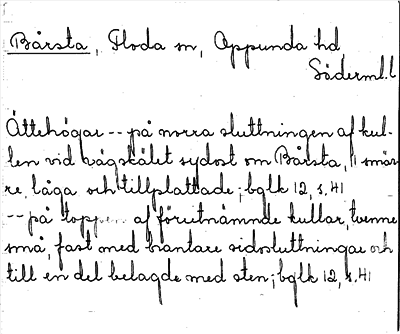 Bårsta, Floda sn, Oppunda hd
Söderml.l
Ättehögar -- på norra sluttningen af kul-
len vid vägskälet sydost om Bårsta, 11 smär-
re, låga och tillplattade; bglk 12, s. 41
-- på toppen af förutnämnde kullar, tvenne
små, fast med brantare sidosluttningar och
till en del belagde med sten; bglk 12, s. 41